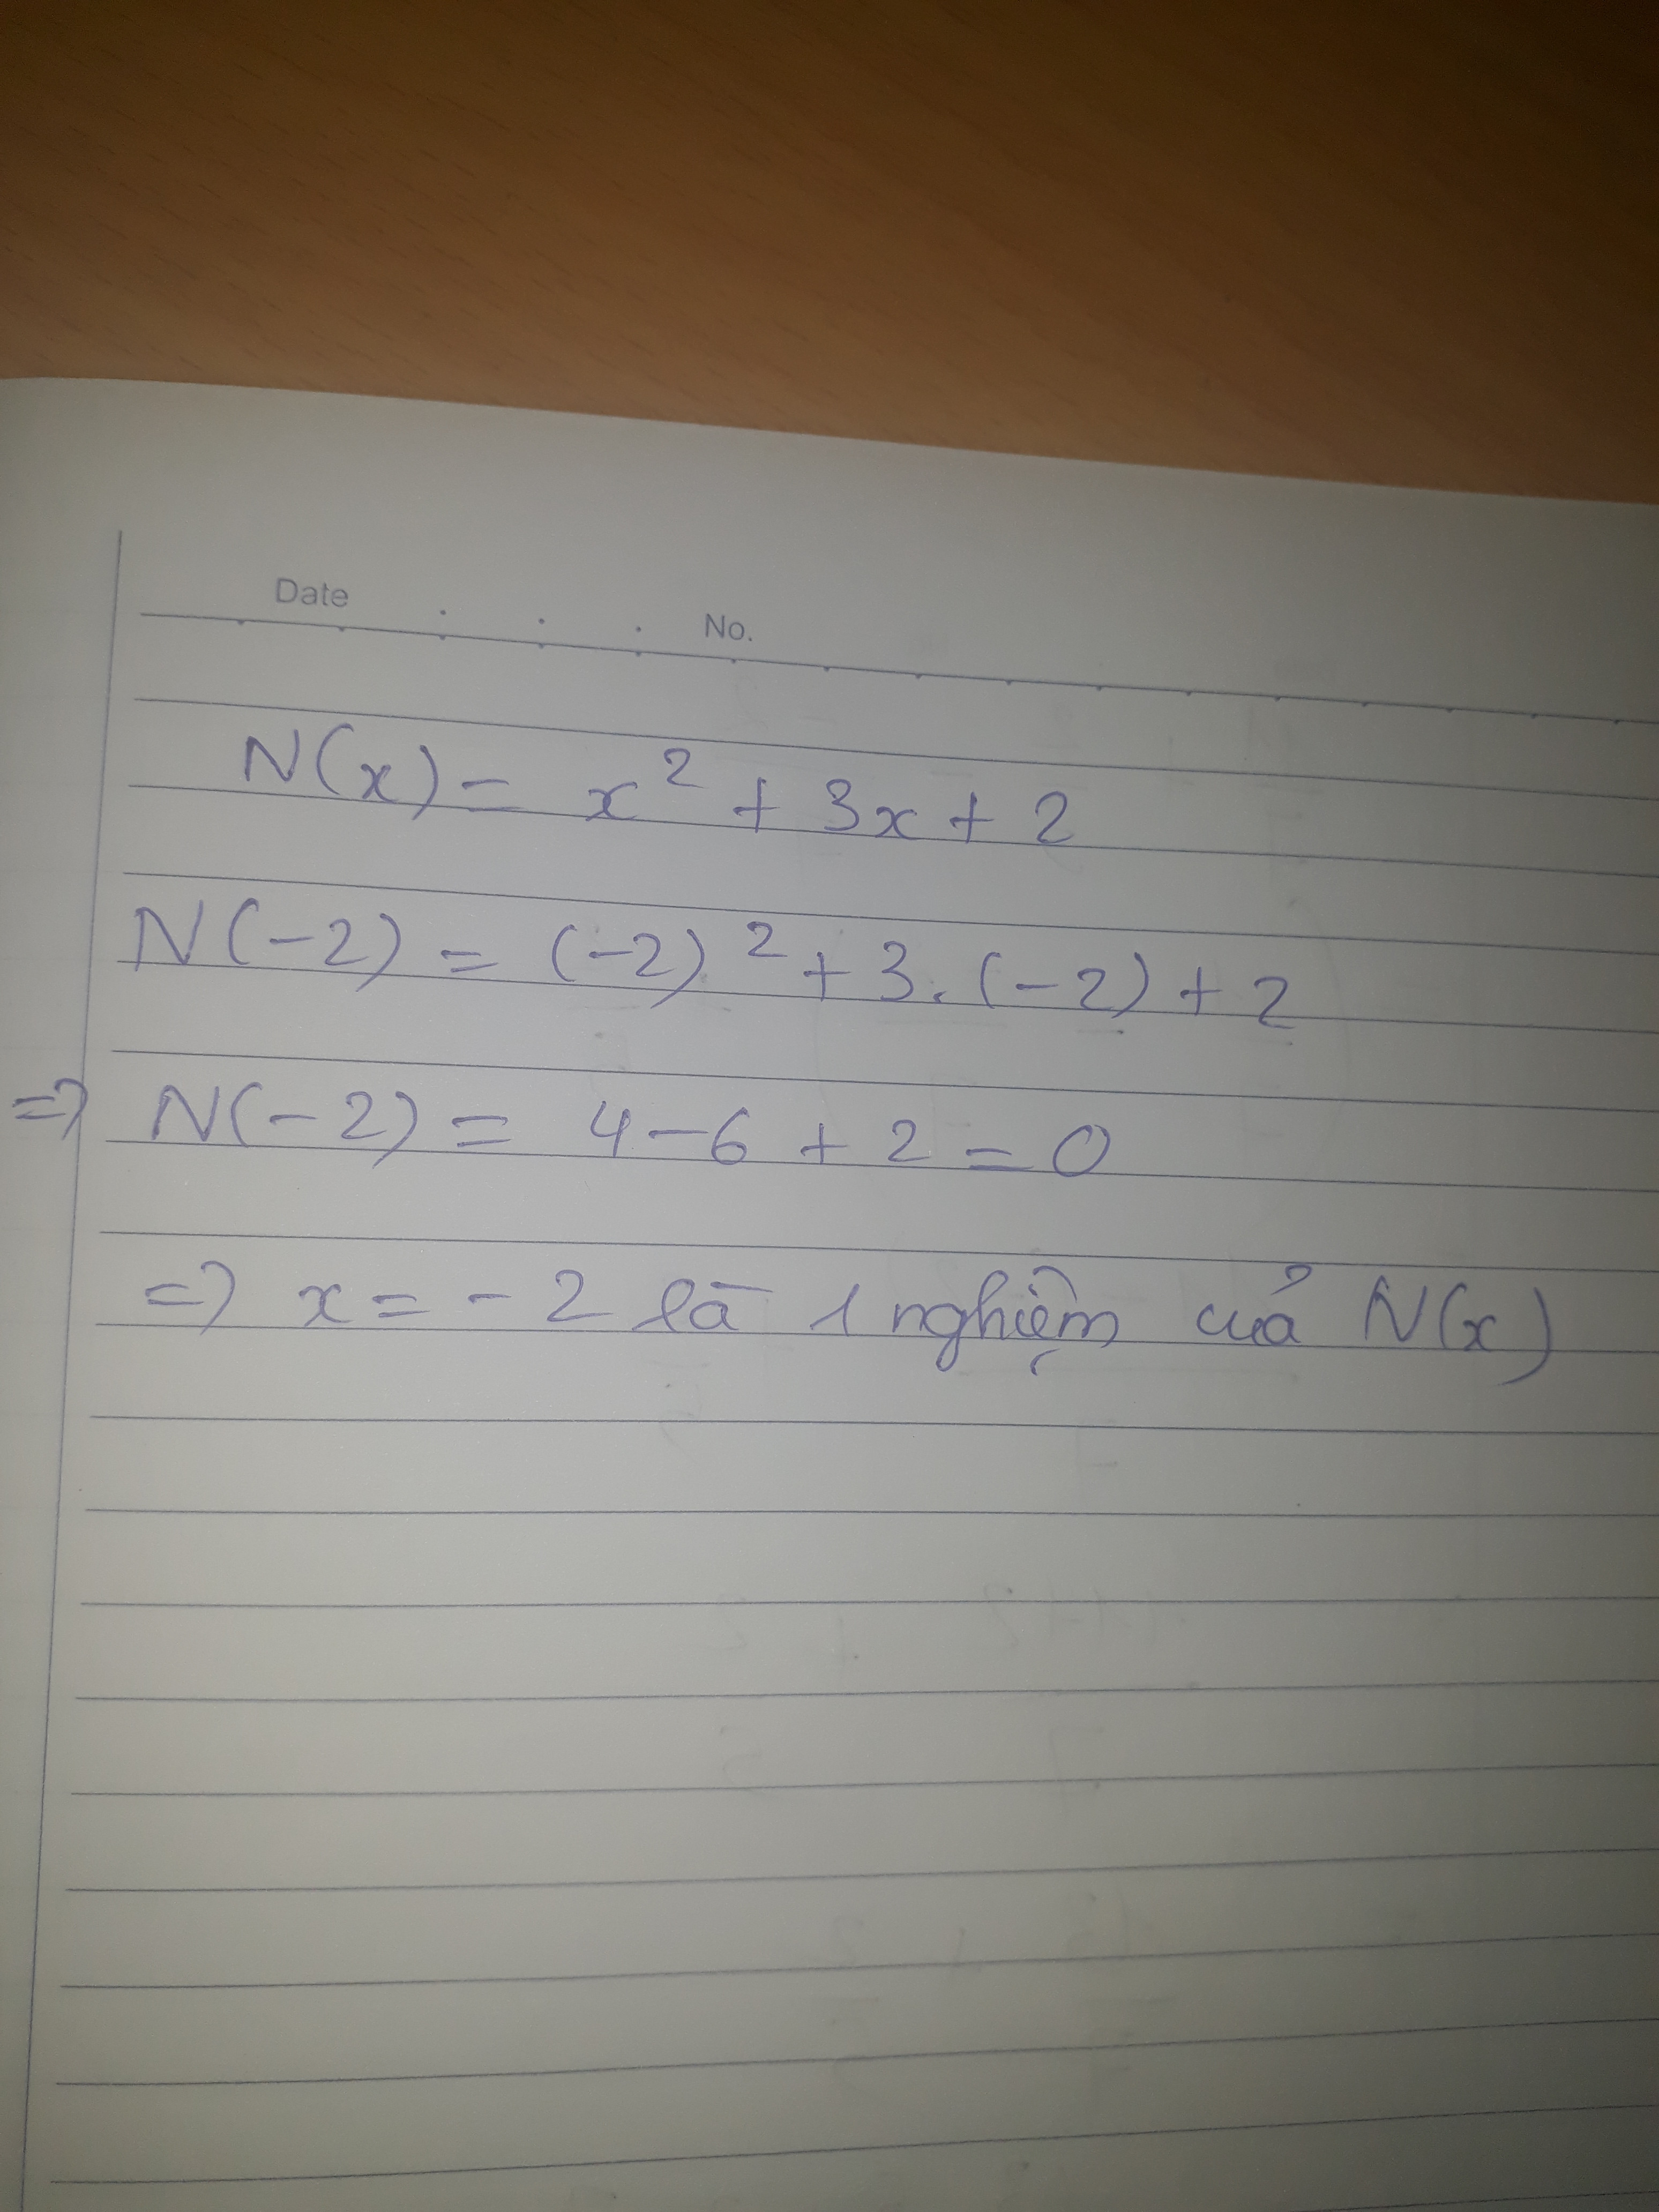 Date . . . No.
N(x) = x² + 3x + 2
N(-2) = (-2)² + 3.(-2) + 2
=> N(-2) = 4 - 6 + 2 = 0
=> x = -2 là 1 nghiệm của N(x)